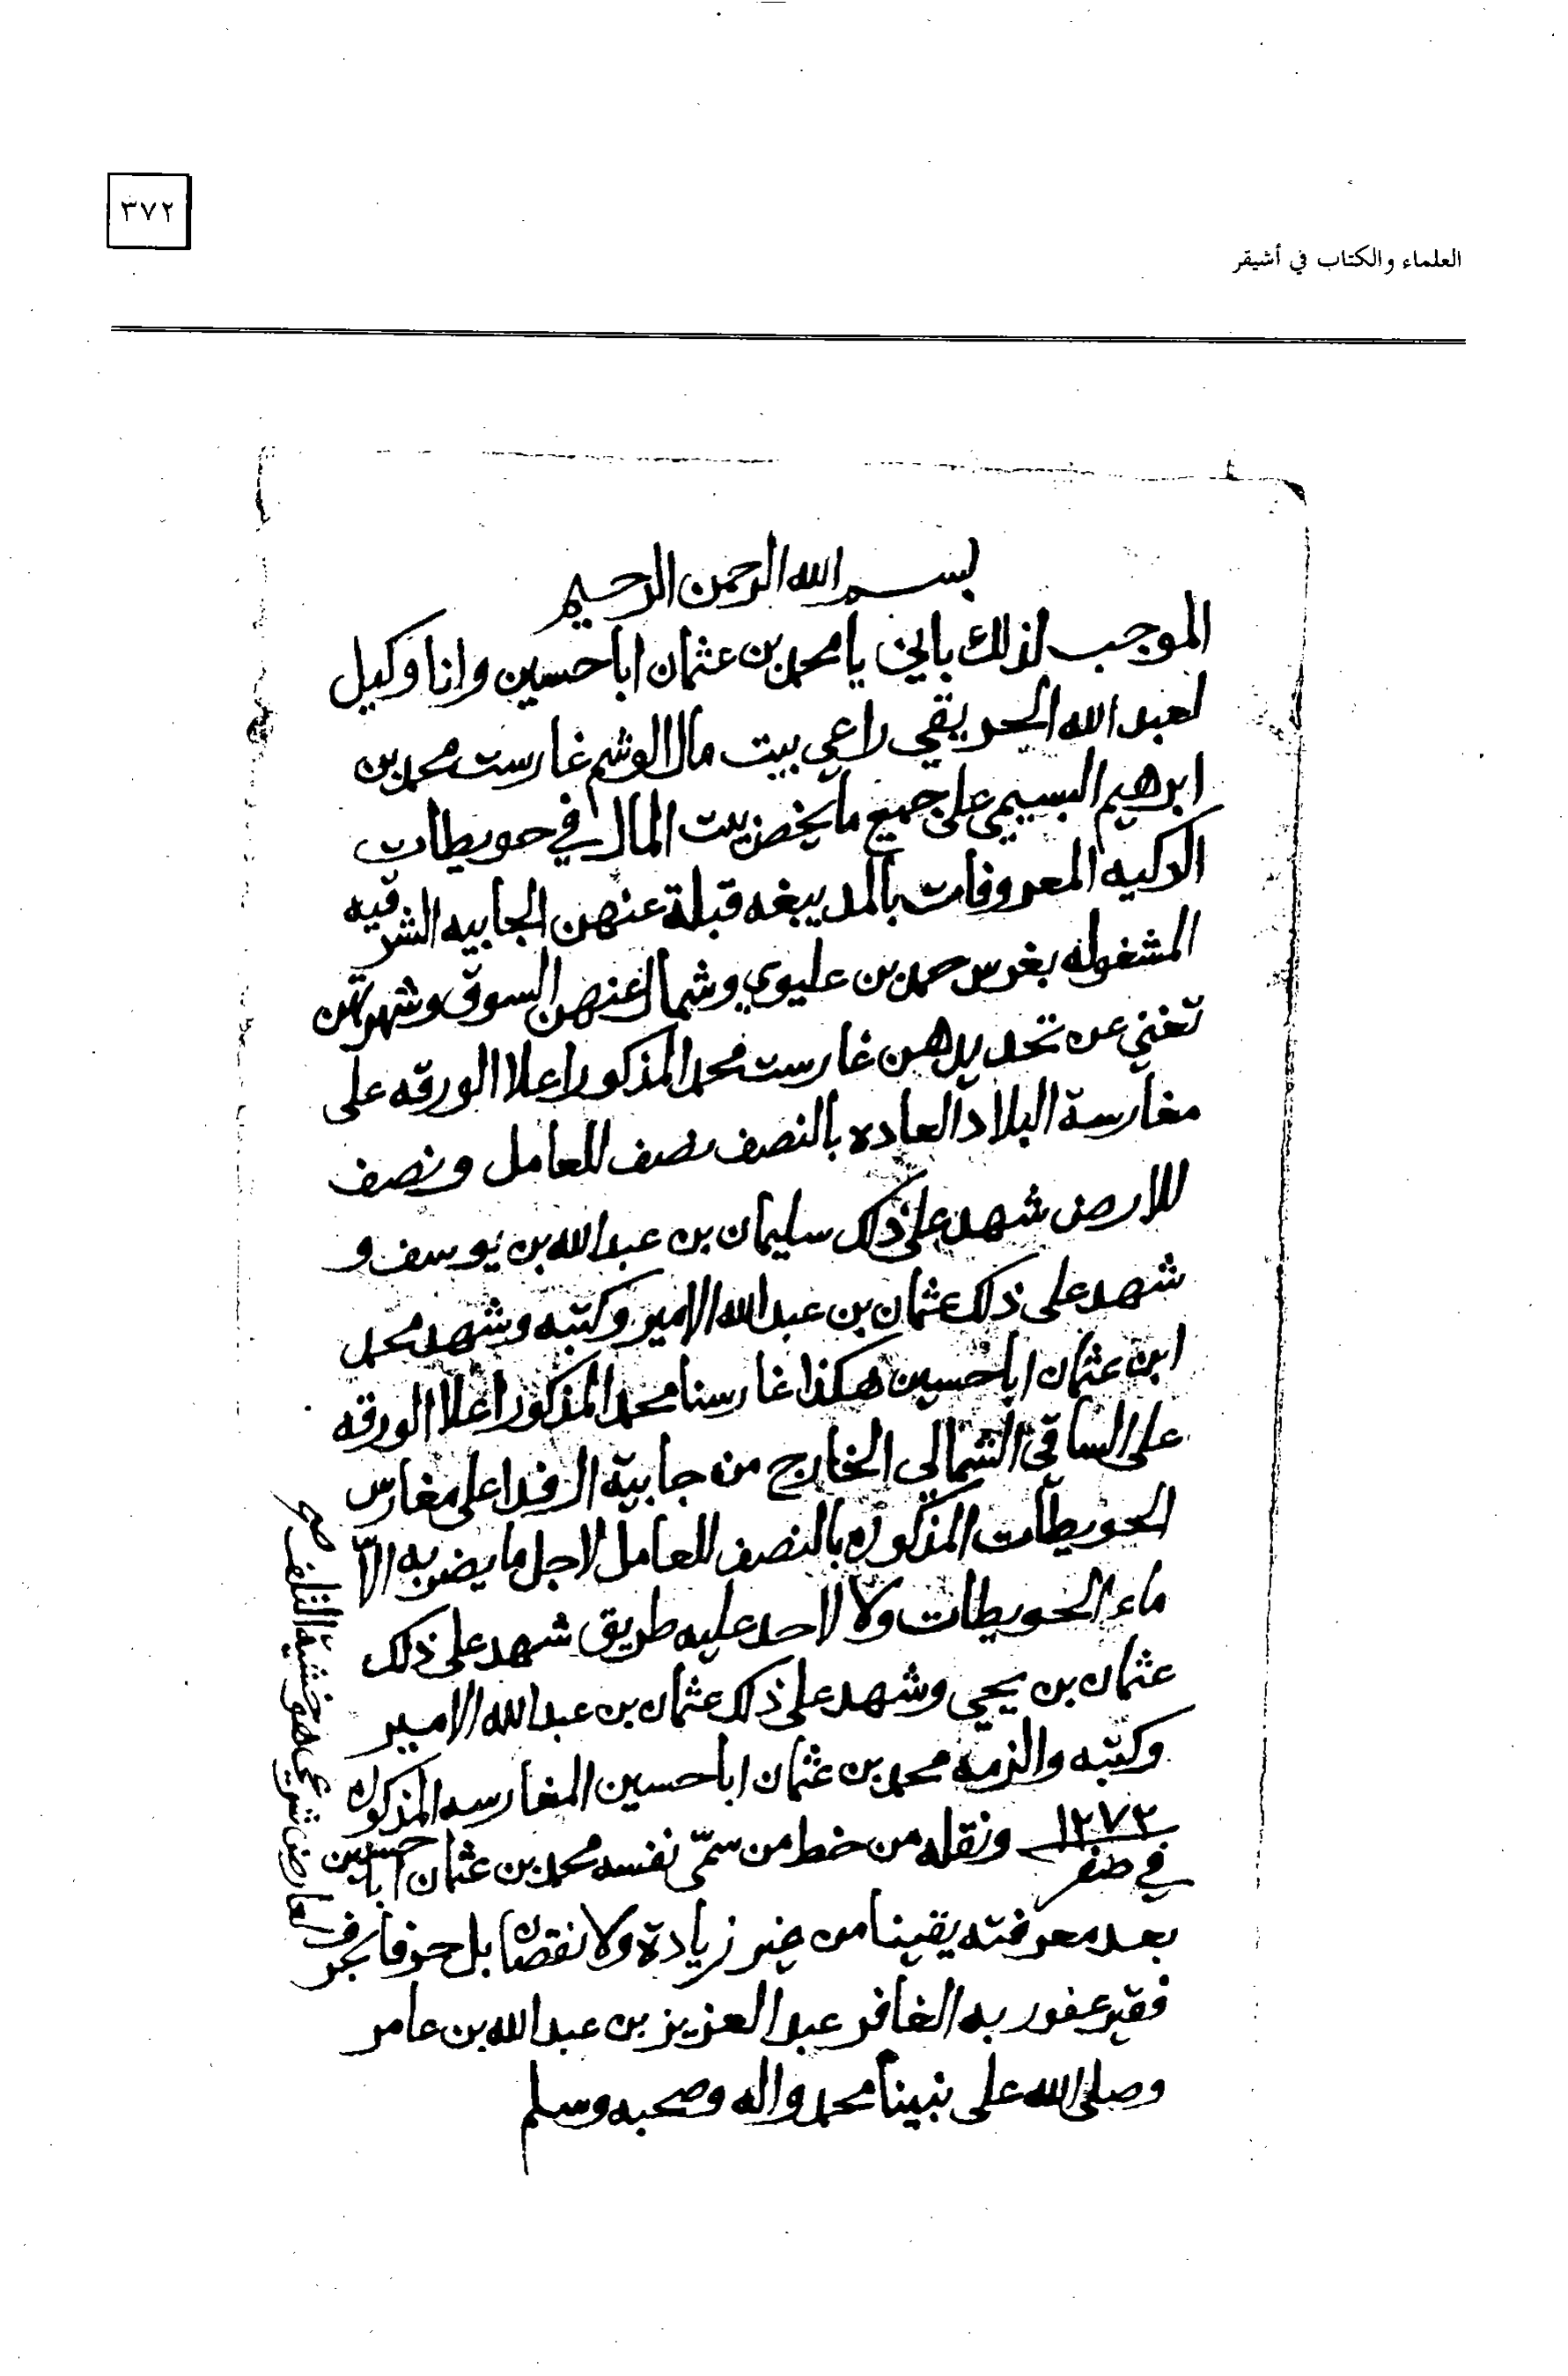 ٣٧٢
العلماء والكتاب في أشيقر
بسم الله الرحمن الرحيم
الموجب لذلك باني يا محمد بن عثمان اباحسين وانا وكيل
لعبد الله الحريقي راعي بيت مال الوشم غارست محمد بن
ابرهيم البسيمي على جميع ما يخص بيت المال في حويطات
الركيه المعروفات بالمديبغه قبلة عنهن الجابيه الشرقيه
المشغوله بغرس حمد بن عليوي وشمال عنهن السوق وشهرتهن
تغني عن تحديدهن غارست محمد المذكور اعلا الورقه على
مغارسة البلاد العاده بالنصف نصف للعامل ونصف
للارض شهد على ذلك سليمان بن عبدالله بن يوسف و
شهد على ذلك عثمان بن عبدالله الامير وكتبه وشهد محمد
ابن عثمان اباحسين هكذا غارسنا محمد المذكور اعلا الورقه
على الساقي الشمالي الخارج من جابية الرفدا على مغارس
الحويطات المذكوره بالنصف للعامل لاجل ما يضربه الا
ماء الحويطات ولا لاحد عليه طريق شهد على ذلك
عثمان بن يحيى وشهد على ذلك عثمان بن عبدالله الامير
وكتبه والزمه محمد بن عثمان اباحسين المغارسه المذكوره
في صفر ١٢٧٢ ونقله من خط من سمّى نفسه محمد بن عثمان اباحسين
بعد معرفته يقينا من غير زيادة ولا نقصان بل حرفا بحرف
فقير عفو ربه الغافر عبد العزيز بن عبدالله بن عامر
وصلى الله على نبينا محمد واله وصحبه وسلم
لعارض شرعي هو خشية التلف صح